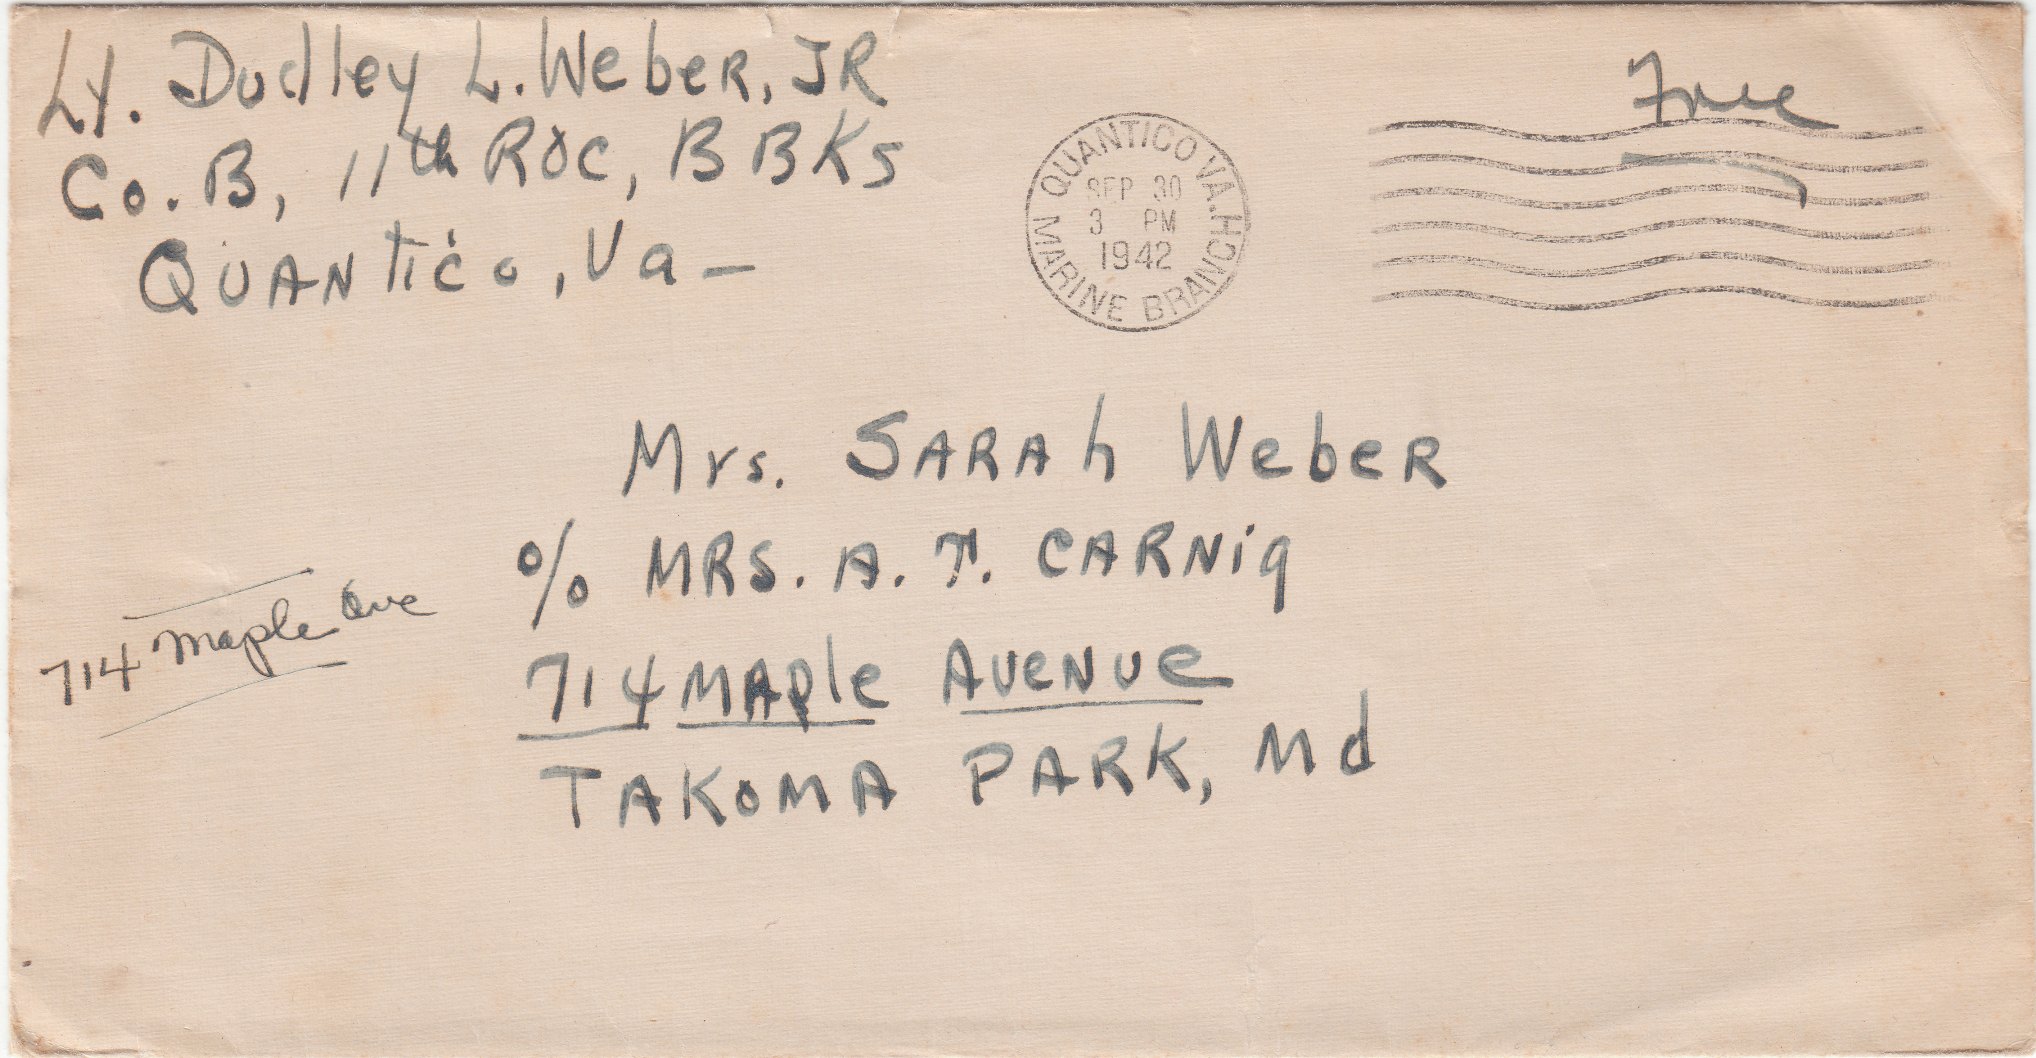 Lt. Dudley L. Weber, JR
Co. B, 11th ROC, B BKs
Quantico, Va —
Free
QUANTICO VA.
SEP 30
3 PM
1942
MARINE BRANCH
Mrs. SARAh WebeR
% MRS. A. T. CARNig
714 MAple AveNue
TAKOMA PARK, Md
714 Maple Ave